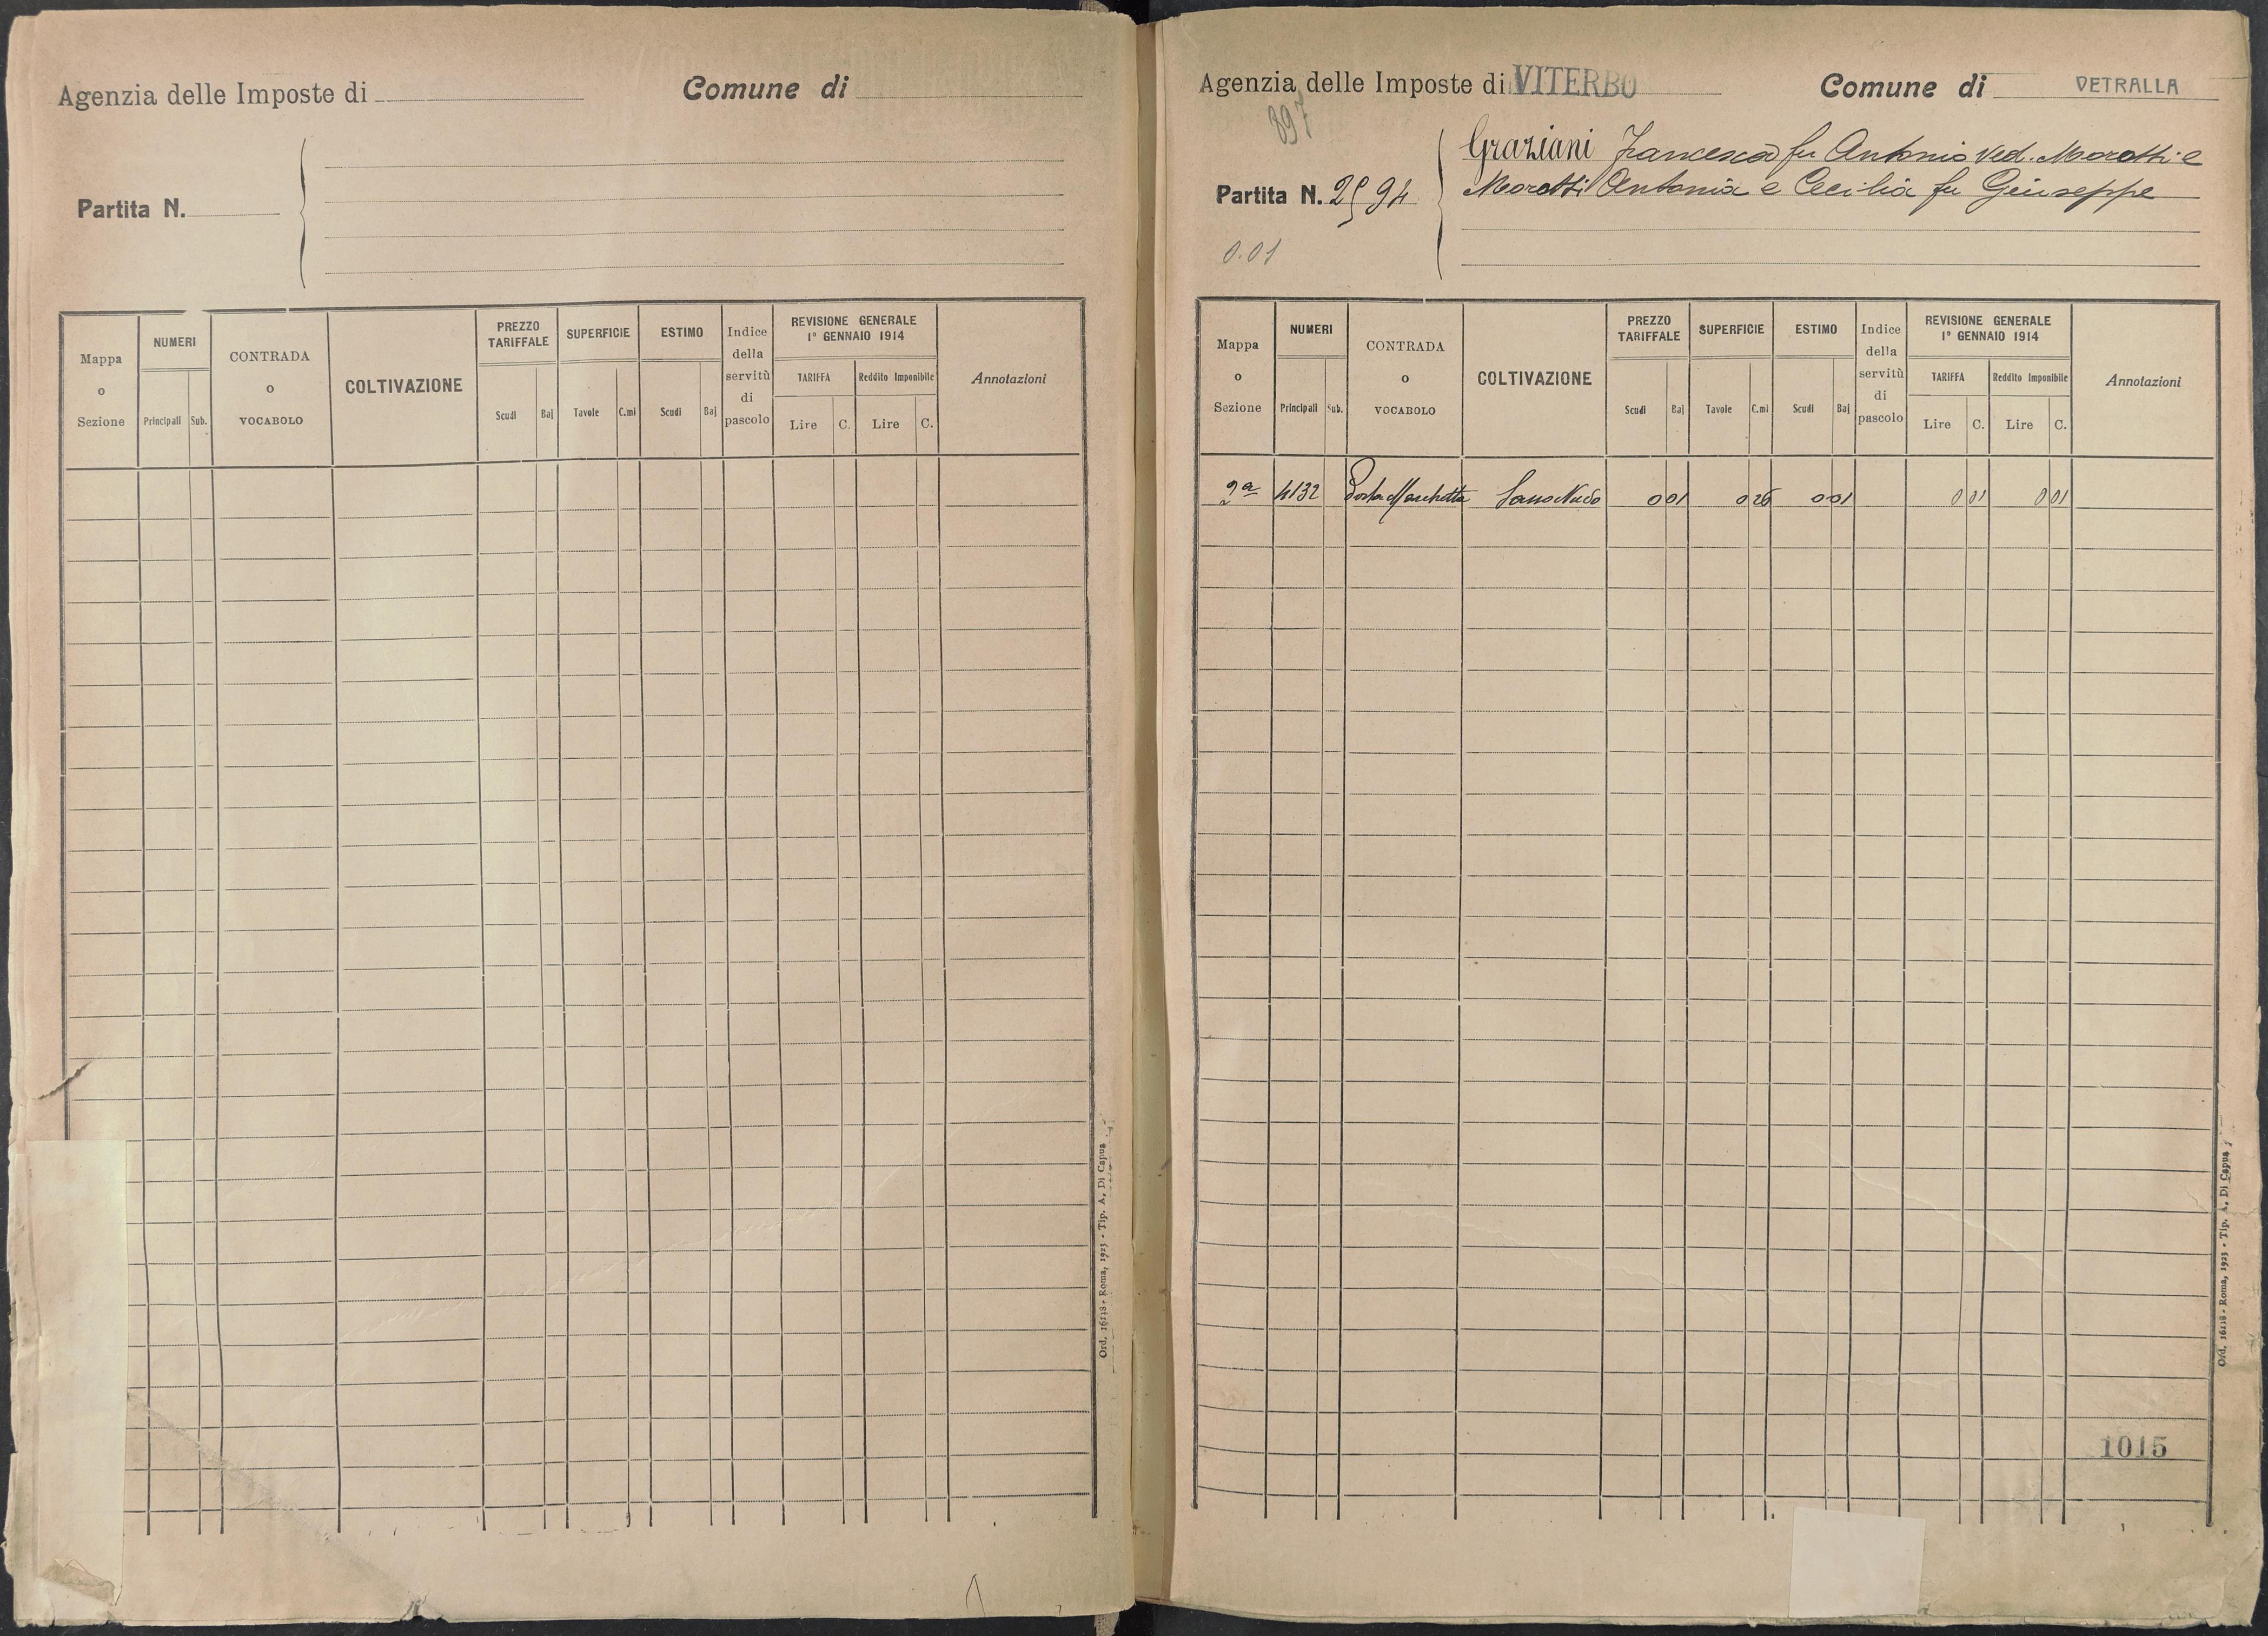 Agenzia delle Imposte di
Comune di
Partita N.
Mappa o Sezione
NUMERI
Principali Sub.
CONTRADA o VOCABOLO
COLTIVAZIONE
PREZZO TARIFFALE
Scudi Baj
SUPERFICIE
Tavole C.mi
ESTIMO
Scudi Baj
Indice della servitù di pascolo
REVISIONE GENERALE
1° GENNAIO 1914
TARIFFA
Lire C.
Reddito Imponibile
Lire C.
Annotazioni
Ord. 16118 - Roma, 1923 - Tip. A. Di Capua
Agenzia delle Imposte di VITERBO
Comune di VETRALLA
897
Graziani Francesca fu Antonio Ved. Morotti e
Partita N. 2594
Morotti Antonia e Cecilia fu Giuseppe
0.01
Mappa o Sezione
NUMERI
Principali Sub.
CONTRADA o VOCABOLO
COLTIVAZIONE
PREZZO TARIFFALE
Scudi Baj
SUPERFICIE
Tavole C.mi
ESTIMO
Scudi Baj
Indice della servitù di pascolo
REVISIONE GENERALE
1° GENNAIO 1914
TARIFFA
Lire C.
Reddito Imponibile
Lire C.
Annotazioni
2a 4132 Porta Marchetta Sasso Nudo 0 01 0 26 0 01 0 01 0 01
1015
Ord. 16118 - Roma, 1923 - Tip. A. Di Capua